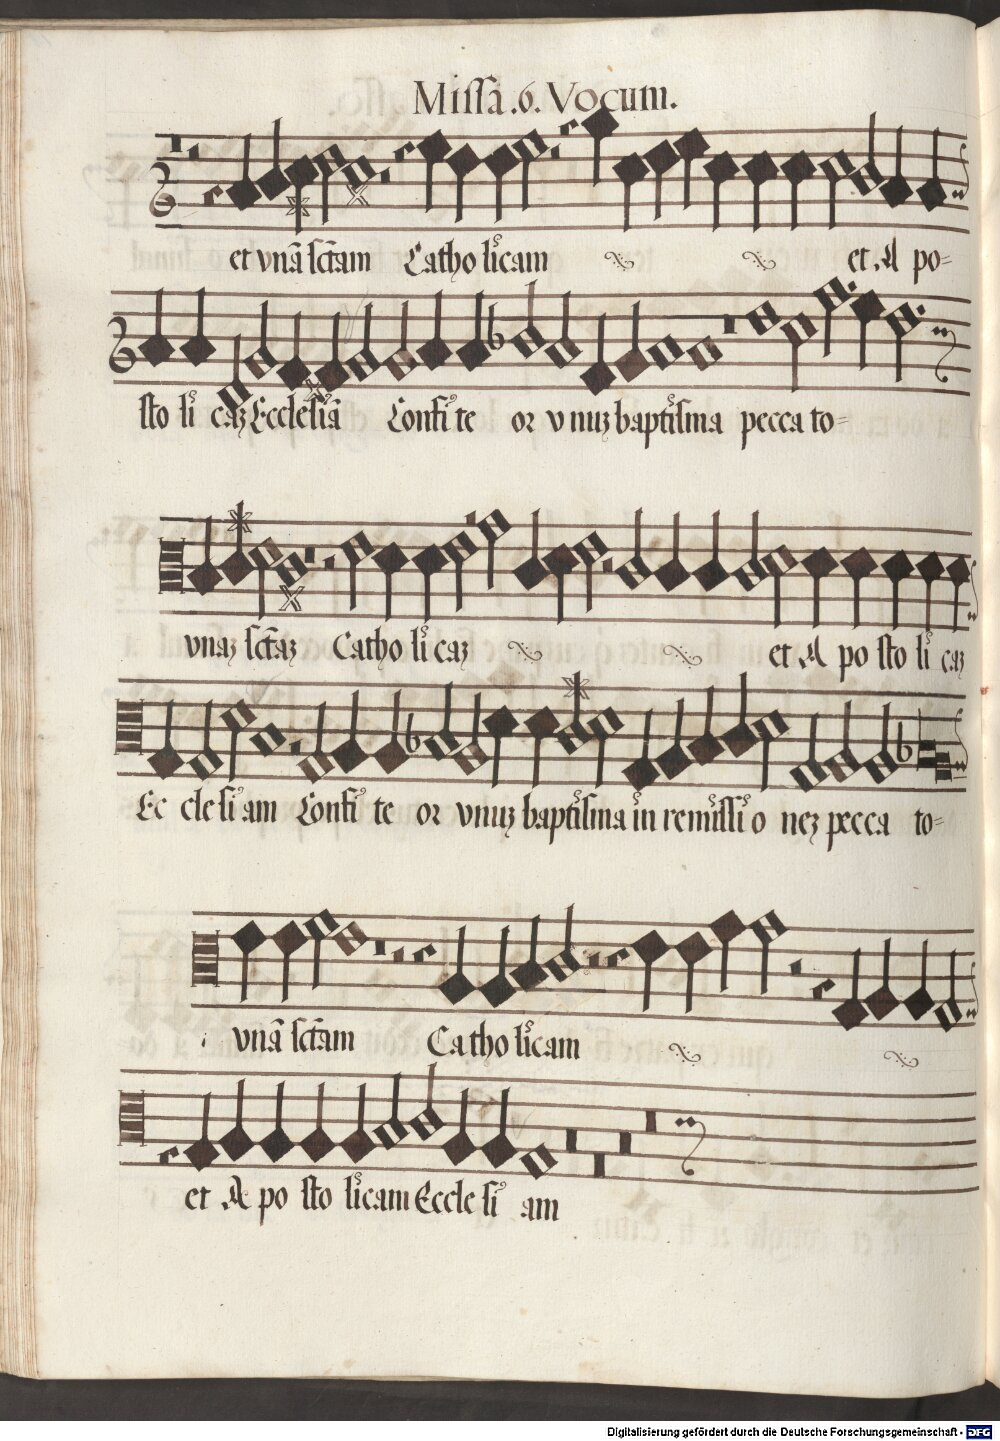 Missa .6. Vocum.
et vnā sctam Catho licam et A po=
sto li caʒ Ecclesiā Confi te or v nuʒ baptisma pecca to=
vnaʒ sctaʒ Catho li caʒ et A po sto li caʒ
Ec cle si am Confi te or vnuʒ baptisma in remissi o neʒ pecca to=
vnā sctam Ca tho licam
et A po sto licam Eccle si am
Digitalisierung gefördert durch die Deutsche Forschungsgemeinschaft - DFG